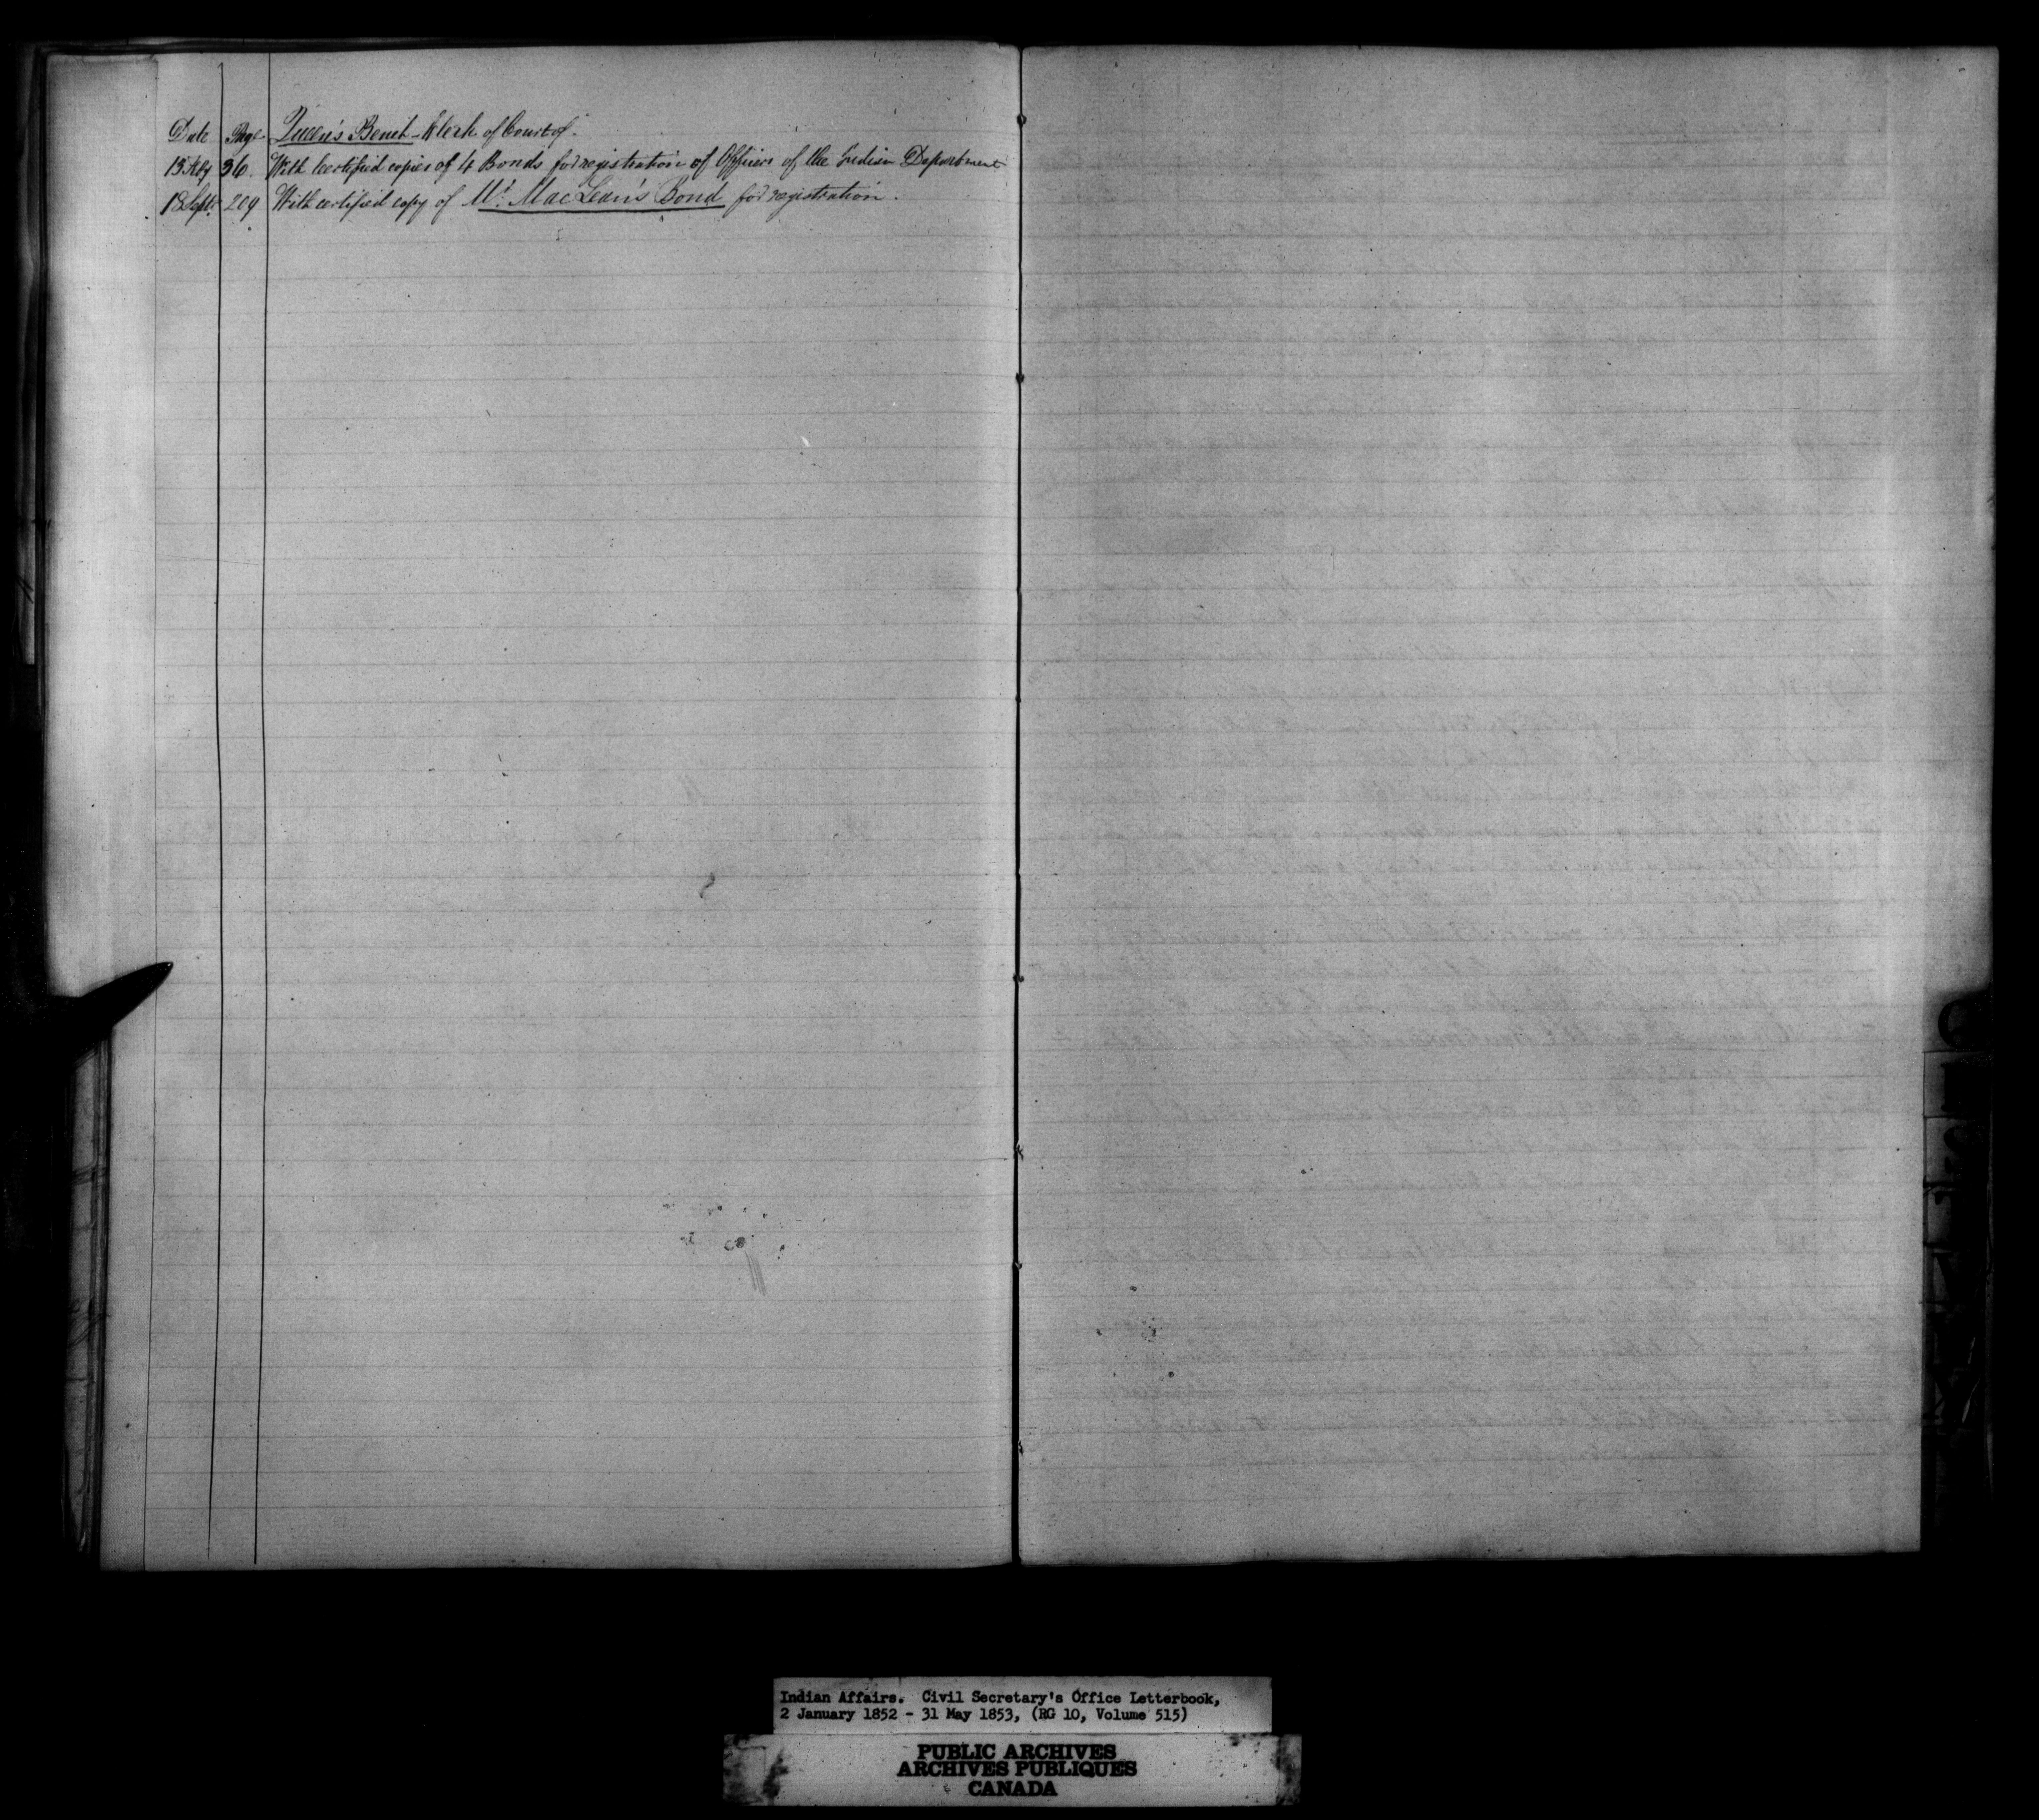 Date Page Queen's Bench - Clerk of Court of -
13 Feby 36. With Certified copies of 4 Bonds for registration of Officers of the Indian Department
18 Sept. 209 With certified copy of Mr. MacLean's Bond for registration.
Q
Indian Affairs. Civil Secretary's Office Letterbook,
2 January 1852 - 31 May 1853, (RG 10, Volume 515)
PUBLIC ARCHIVES
ARCHIVES PUBLIQUES
CANADA